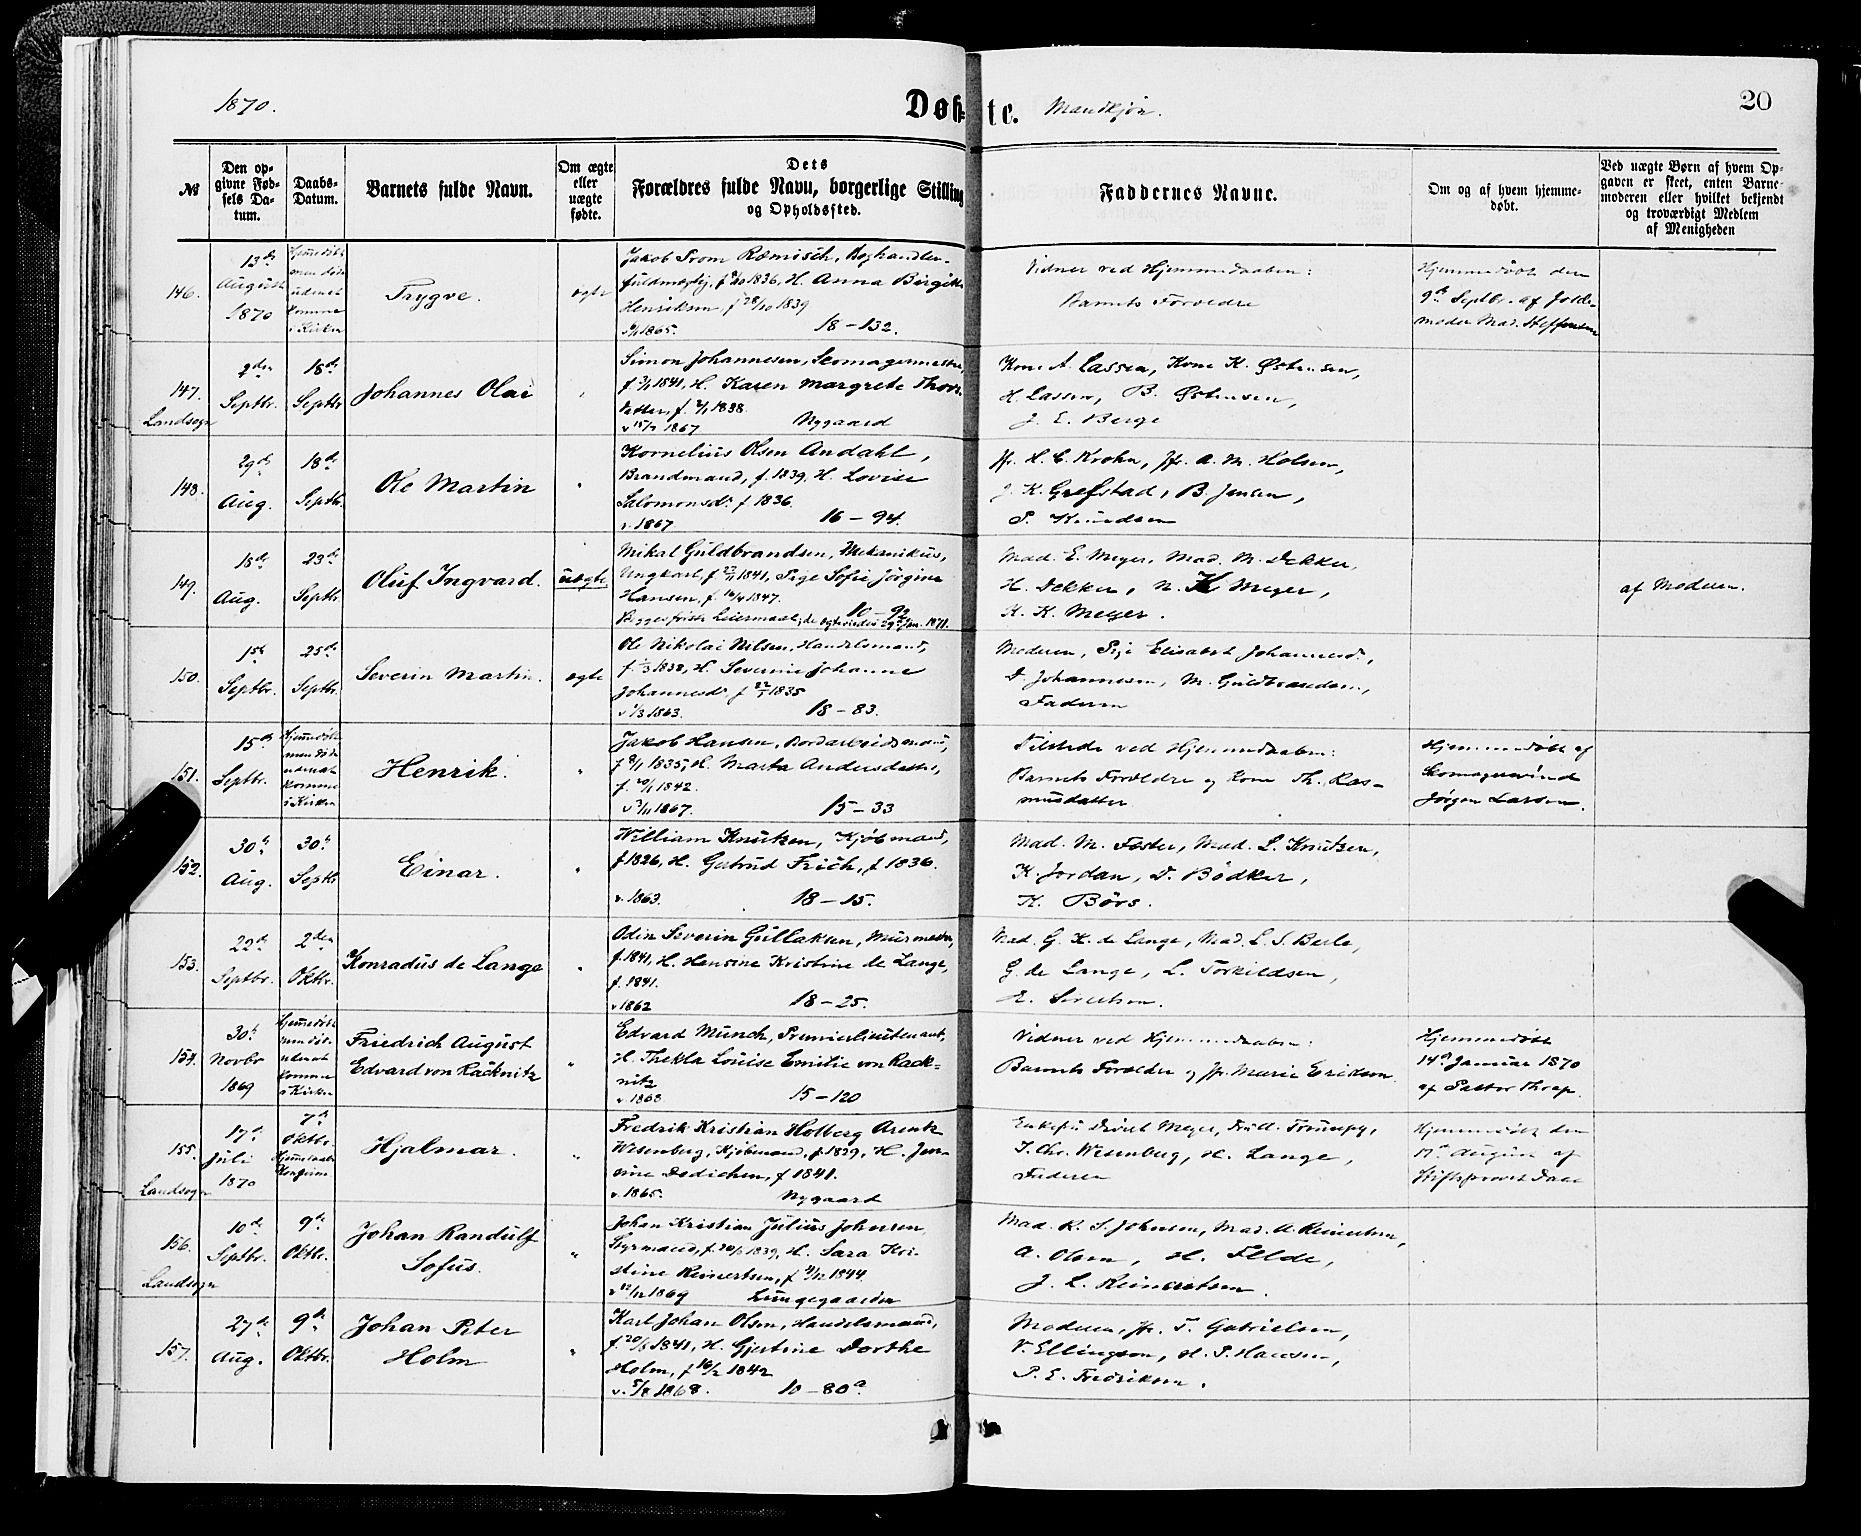 1870.
Døbte.
Mandkjøn.
20
№
Den op-
givne Fød-
sels Da-
tum.
Daabs-
Datum.
Barnets fulde Navn.
Om ægte
eller
uægte
fødte.
Dets
Forældres fulde Navn, borgerlige Stilling
og Opholdssted.
Faddernes Navne.
Om og af hvem hjemme-
døbt.
Ved uægte Børn af hvem Op-
gaven er skeet, enten Barne-
moderen eller hvilket bekjendt
og troværdigt Medlem
af Menigheden
146.
13de
August
1870
Hjemedøbt
men døde
udenat
komme
i Kirken
Trygve.
ægte
Jakob From Ræmisch, Boghandler-
fuldmægtig, f. 1836, H. Anna Birgitte
Henriksen f 28/10 1839
1865.
18 – 132.
Vidner ved Hjemmedaaben:
Barnets Forældre
Hjemmedøbt den
9de Septbr. af Jorde-
moder Mad. Steffensen
147.
Landsogn
2den
Septbr.
18de
Septbr
Johannes Olai
Simon Johannesen, Skomagermester,
1841, H. Karen Margrete Thors-
datter, f. 1838.
1867
Nygaard
Kone A. Lassen, Kone K. Østensen,
H. Lassen, B. Østensen,
J. E. Berge
148.
29de
Aug.
18de
Septbr.
Ole Martin
Kornelius Olsen Andahl,
Brandmand, f. 1839, H. Lovise
Salomonsdr f 1836.
v. 1867
16 – 94.
Jfr. H. C. Krohn, Jfr. A. M. Holsen,
J. K. Grefstad, B. Jensen,
P. Knudsen
149.
18de
Aug.
23de
Septbr
Oluf Ingvard.
uægte
Mikal Guldbrandsen, Mekanikus,
Ungkarl, f 1841, Pige Sofie Jørgine
Hansen, f. 16/4 1847.
10 – 92
Begges første Leiermaal; de ægteviedes 29de Jan. 1871.
Mad. E. Meyer, Mad. M. Dekker,
H. Dekker, N. K Meyer,
K. K. Meyer.
af Moderen.
150.
1ste
Septbr.
25de
Septbr.
Severin Martin.
ægte
Ole Nikolai Nilsen, Handelsmand,
f. 1838, H. Severine Johanne
Johannesdr f 1835
1863.
18 – 83.
Moderen, Pige Elisabet Johannesdr,
D. Johannesen, M. Guldbrandsen,
Faderen
151.
15de
Septbr.
Hjemedøbt
men døde
udenat
komme
i Kirken
Henrik.
Jakob Hansen, Jordarbeidsmand,
1835, H. Marta Andersdatter,
1842.
1867.
15 – 33
Tilstede ved Hjemmedaaben:
Barnets Forældre og Kone Th. Ras-
musdatter
Hjemmedøbt af
Skomagersvend
Jørgen Larsen.
152.
30te
Aug.
30te
Septbr
Einar.
William Knutzen, Kjøbmand,
f. 1826, H. Gertrud Frich, f 1836.
v. 1863.
18 – 15.
Mad. M. Faster, Mad. L. Knutzen,
K. Jordan, D. Bødker,
K. Børs.
153.
22de
Septbr.
2den
Oktbr.
Konradus de Lange
Odin Severin Gullaksen, Murmester,
f. 1841, H. Hensine Kristine de Lange,
f. 1841.
v. 1862
18 – 25.
Mad. G. K. de Lange, Mad. L. S. Berle,
G. de Lange, L. Torkildsen,
E. Sivertsen.
154.
30te
Novbr
1869
Hjemedøbt
men døde
udenat
komme
i Kirken
Friedrich August
Edvard von Racknitz
Edvard Munch, Premierlieutenant,
H. Thekla Louise Emilie von Rack-
nitz
v. 1868
15 – 120
Vidner ved Hjemmedaaben:
Barnets Forældre og Jfr. Marie Erikson
Hjemmedøbt
14de Januar 1870
af Pastor Thrap.
155.
Landsogn
17de
Juli
1870
7de
Oktbr.
Hjalmar.
Fredrik Kristian Holberg Arentz
Wesenberg, Kjøbmand, f. 1829, H. Jen-
sine Dedichen, f 1841.
v. 1865.
Nygaard
Enkefru Meyer,
J. Chr. Wesenberg, H. Lange,
Faderen
Hjemmedøbt den
17de August af
Stiftsprovst Daae
156.
Landsogn
10de
Septbr.
9de
Oktbr.
Johan Randulf
Sofus.
Johan Kristian Julius Johnsen
Styrmand, f. 1839, H. Sara Kri-
stine Reinertsen, f 1844.
1869
Lungegaarden
Mad. K. S. Johnsen, Mad. A. Reinertsen,
A. Olsen, H. Felde,
J. L. Reinertsen.
157.
27de
Aug.
9de
Oktbr.
Johan Peter
Holm
Karl Johan Olsen, Handelsmand,
f. 1841, H. Gjertine Dorthe
Holm, f 16/2 1842
v. 5/8 1868.
10 – 80a
Moderen, Jfr. T. Gabrielsen,
V. Ellingsen, H. P. Hansen,
P. E. Fredriksen.